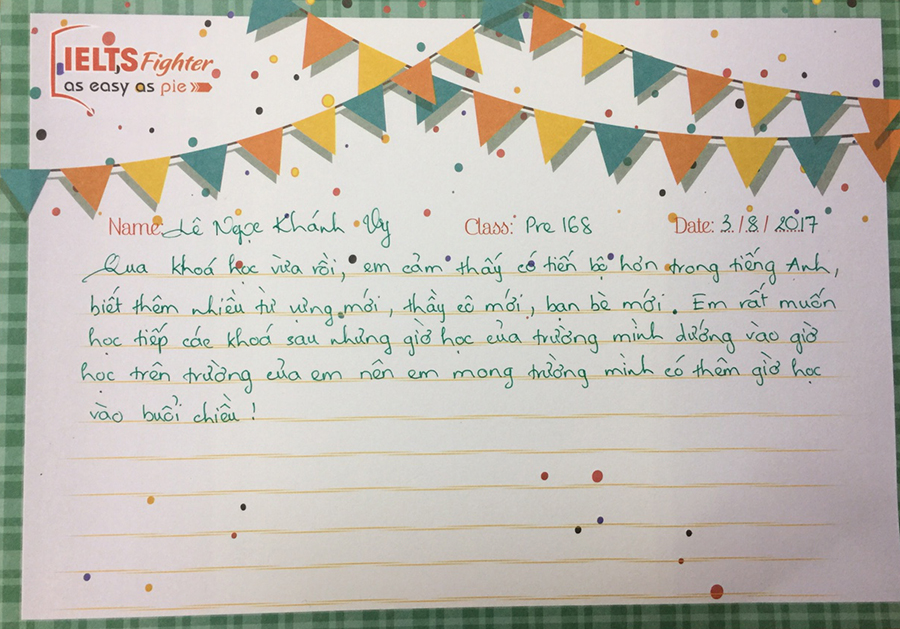 IELTS Fighter
as easy as pie
Name: Lê Ngọc Khánh Vy Class: Pre 168 Date: 3/8/2017
Qua khoá học vừa rồi, em cảm thấy có tiến bộ hơn trong tiếng Anh,
biết thêm nhiều từ vựng mới, thầy cô mới, bạn bè mới. Em rất muốn
học tiếp các khoá sau nhưng giờ học của trường mình dướng vào giờ
học trên trường của em nên em mong trường mình có thêm giờ học
vào buổi chiều!